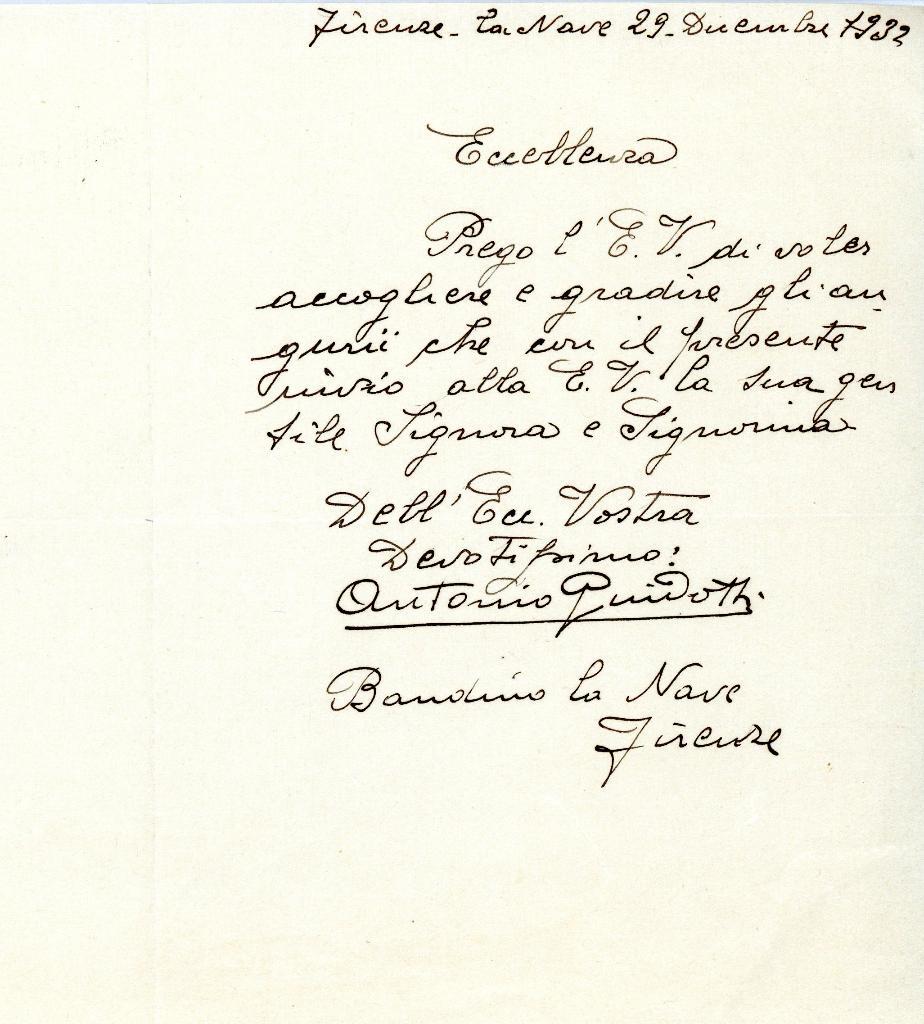 Firenze - La Nave 29 - Dicembre 1932
Eccellenza
Prego l'E.V. di voler
accogliere e gradire gli au
gurii che con il presente
invio alla E.V. la sua gen
tile Signora e Signorina
Dell'Ecc. Vostra
Devotissimo:
Antonio Guidotti.
Bandino la Nave
Firenze